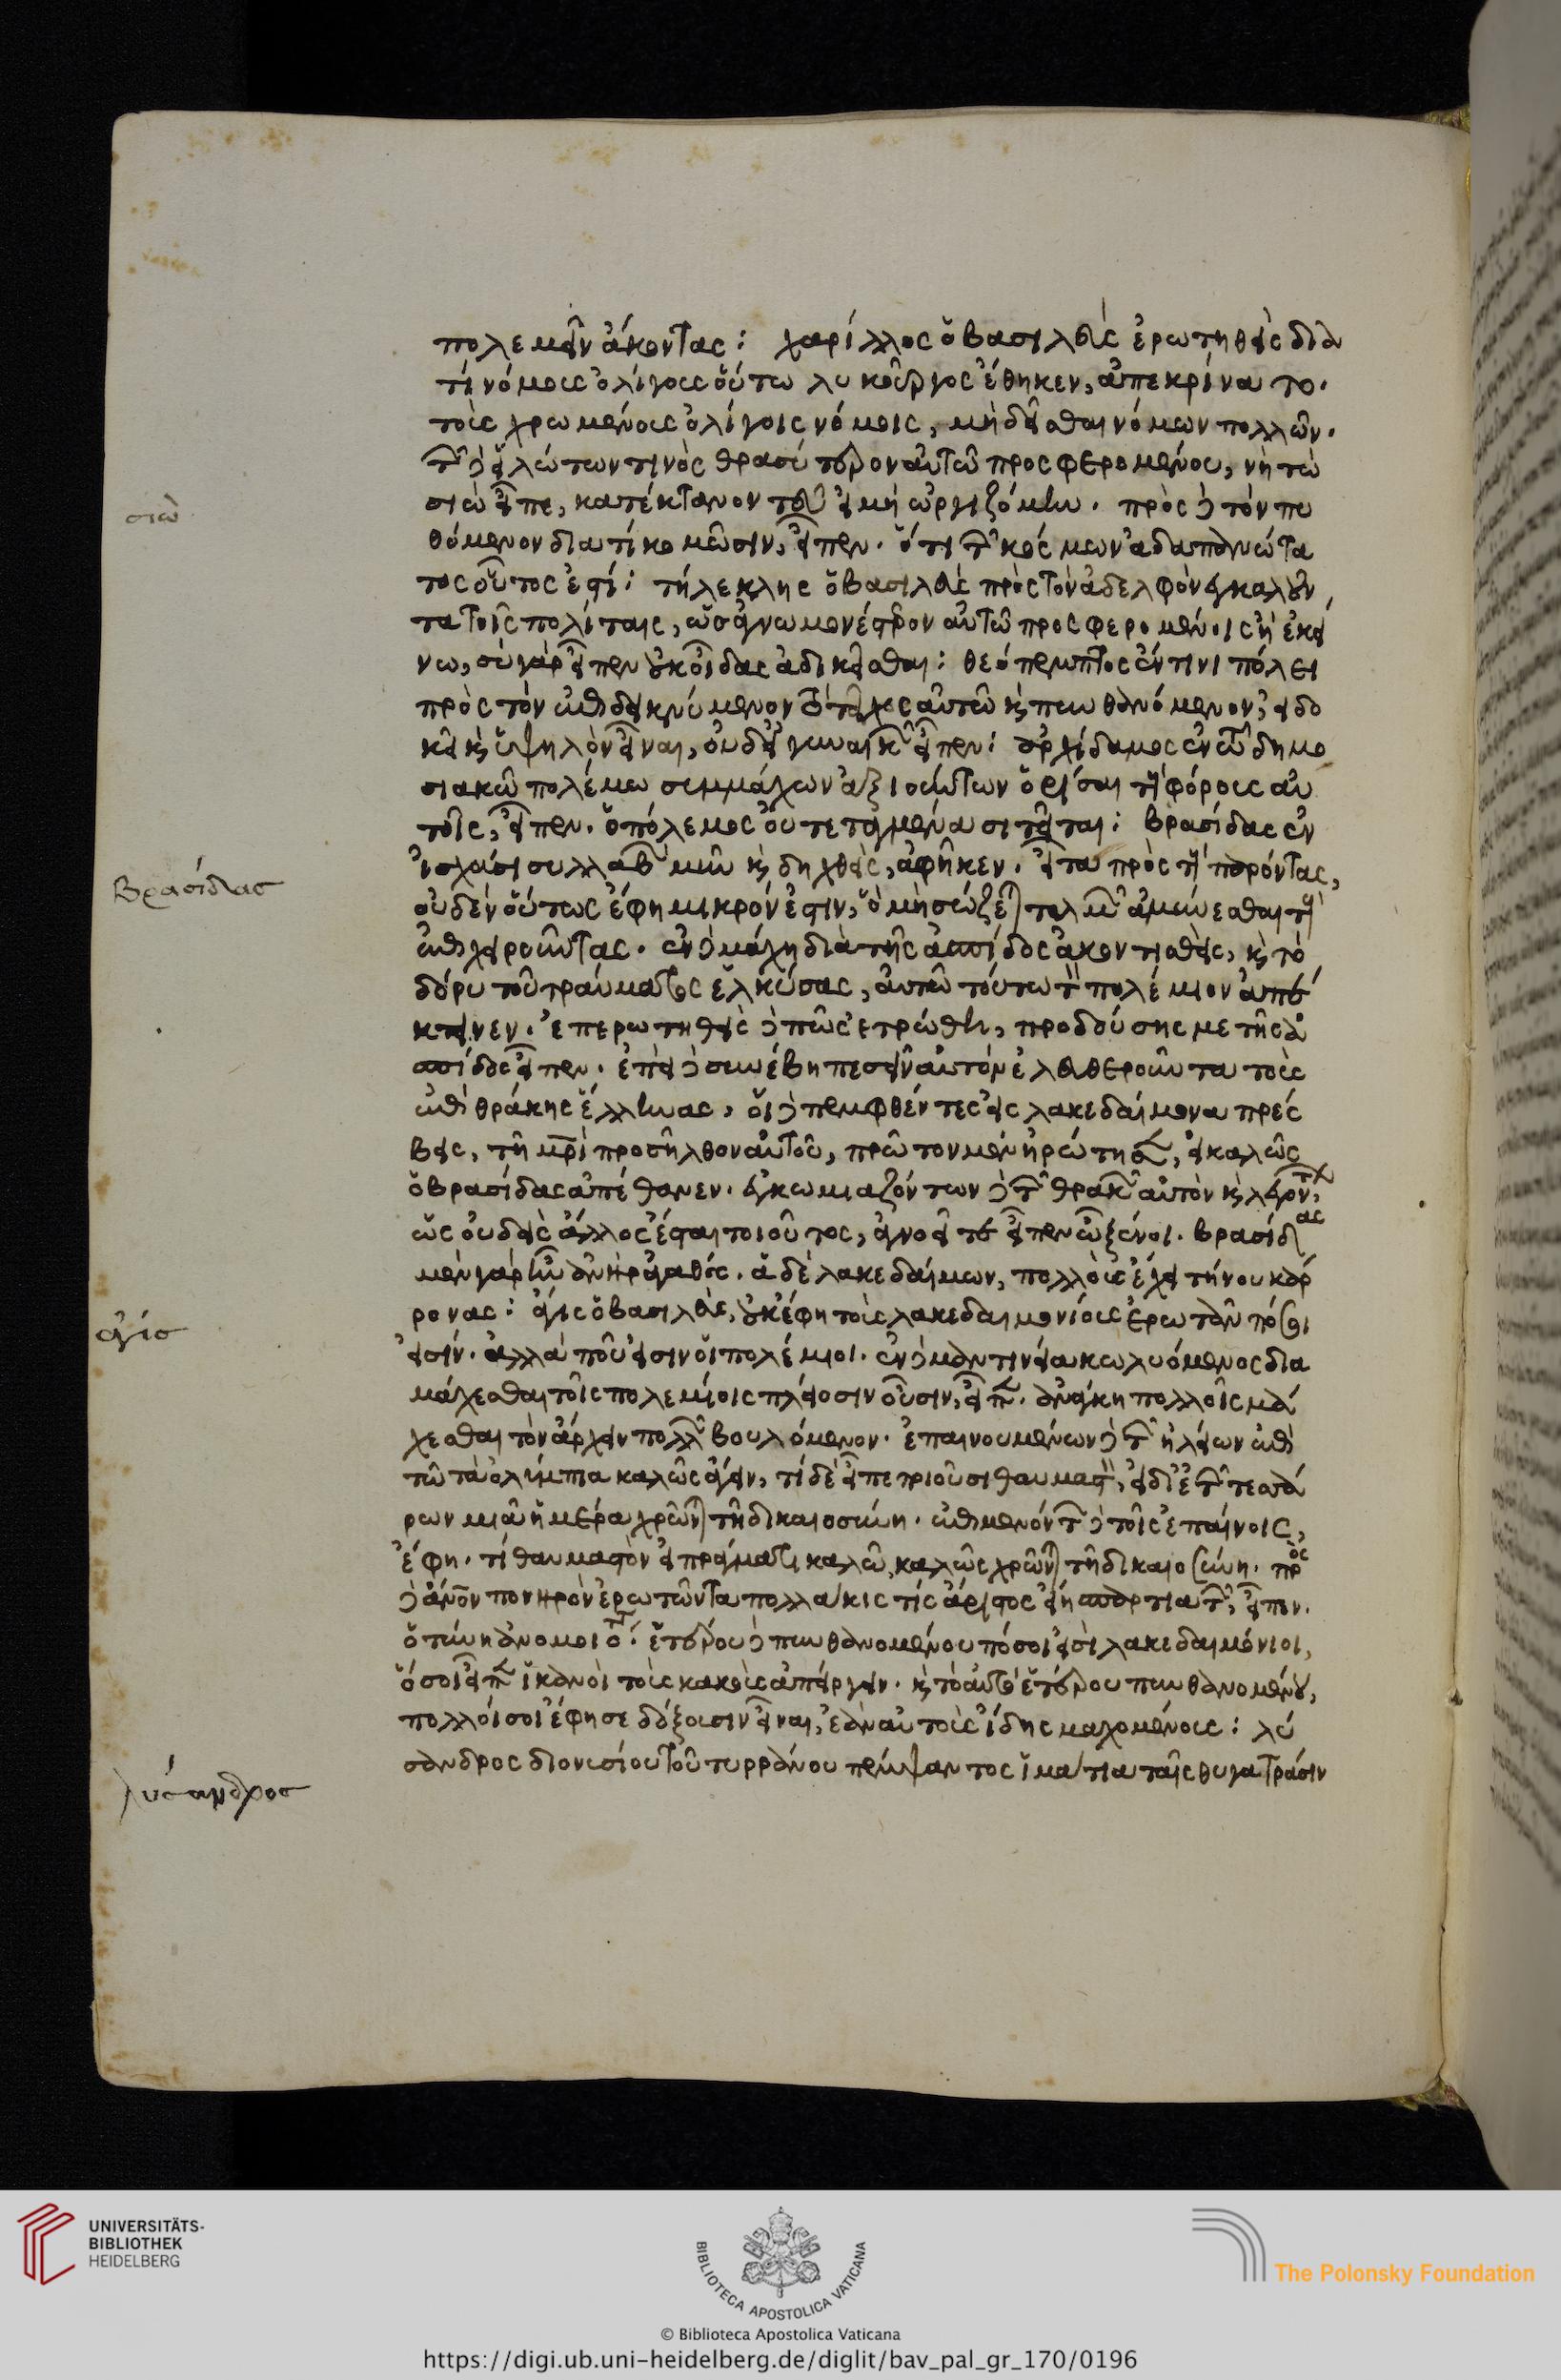 πολεμεῖν ἄκοντας: χαρίλλος ὁ βασιλεὺς ἐρωτηθεὶς διὰ
τί νόμους ὀλίγους οὕτω λυκοῦργος ἔθηκεν, ἀπεκρίνατο.
τοὺς χρωμένους ὀλίγοις νόμοις, μὴ δεῖσθαι νόμων πολλῶν.
τῶν δὲ εἱλώτων τινὸς θρασύτερον αὐτῶ προσφερομένου, νὴ τὼ
σιὼ εἶπε, κατέκτανον ἂν εἰ μὴ ὠργιζόμην. πρὸς δὲ τὸν πυ
θόμενον διατί κομῶσιν, εἶπεν. ὅτι τῶν κόσμων ἀδαπανώτα
τος οὗτός ἐστι: τήλεκλης ὁ βασιλεὺς πρὸς τὸν ἀδελφὸν ἐγκαλοῦν
τα τοῖς πολίταις, ὡς ἀγνωμονέστερον αὐτῶ προσφερομένοις ἢ ἐκεί
νω, σὺ γὰρ εἶπεν οὐκ οἶδας ἀδικεῖσθαι: θεόπεμπτος ἔν τινι πόλει
πρὸς τὸν ἐπιδεικνύμενον τὸ τεῖχος αὐτῶ καὶ πυνθανόμενον, εἰ δο
κεῖ καὶ ὑψηλὸν εἶναι, οὐδ' εἰ γυναικῶν εἶπεν: ἀρχίδαμος ἐν τῶ δημο
σιακῶ πολέμω συμμάχων ἀξιούντων ὁρίσαι τοὺς φόρους αὐ
τοῖς, εἶπεν. ὁ πόλεμος οὐ τεταγμένα σιτεῖται: βρασίδας ἐν
ἰσχάσι συλλαβὼν μῦν καὶ δηχθεὶς, ἀφῆκεν. εἶτα πρὸς τοὺς παρόντας,
οὐδὲν οὕτως ἔφη μικρόν ἐστιν, ὃ μὴ σώζεται τολμῶν ἀμύνεσθαι τοὺς
ἐπιχειροῦντας. ἐν δὲ μάχη διὰ τῆς ἀσπίδος ἀκοντισθεὶς, καὶ τὸ
δόρυ τοῦ τραύματος ἑλκύσας, αὐτῶ τούτω τὸν πολέμιον ἀπέ
κτεινεν. ἐπερωτηθεὶς δὲ πῶς ἐτρώθη, προδούσης με τῆς ἀ
σπίδος εἶπεν. ἐπεὶ δὲ συνέβη πεσεῖν αὐτὸν ἐλευθεροῦντα τοὺς
ἐπὶ θράκης ἕλληνας, οἱ δὲ πεμφθέντες εἰς λακεδαίμονα πρέσ
βεις, τῆ μητρὶ προσῆλθον αὐτοῦ, πρῶτον μὲν ἠρώτησεν, εἰ καλῶς
ὁ βρασίδας ἀπέθανεν. ἐγκωμιαζόντων δὲ τῶν θρακῶν αὐτὸν καὶ λεγόντων,
ὡς οὐδεὶς ἄλλος ἔσται τοιοῦτος, ἀγνοεῖτε εἶπεν ὦ ξένοι. βρασίδας
μὲν γὰρ ἦν ἀνὴρ ἀγαθός. ἁ δὲ λακεδαίμων, πολλοὺς ἔχει τήνου κάρ
ρονας: ἄγις ὁ βασιλεὺς, οὐκ ἔφη τοὺς λακεδαιμονίους ἐρωτᾶν πόσοι
εἰσίν. ἀλλὰ ποῦ εἰσιν οἱ πολέμιοι. ἐν δὲ μαντινεία κωλυόμενος δια
μάχεσθαι τοῖς πολεμίοις πλείοσιν οὖσιν, εἶπεν. ἀνάγκη πολλοῖς μά
χεσθαι τὸν ἄρχειν πολλῶν βουλόμενον. ἐπαινουμένων δὲ τῶν ἠλείων ἐπὶ
τῶ τὰ ὀλύμπια καλῶς ἄγειν, τί δὲ εἶπε ποιοῦσι θαυμαστὸν, εἰ δι' ἐτῶν τεσσά
ρων μιᾶ ἡμέρα χρῶνται τῆ δικαιοσύνη. ἐπιμενόντων δὲ τοῖς ἐπαίνοις,
ἔφη. τί θαυμαστὸν εἰ πράγματι καλῶ καλῶς χρῶνται τῆ δικαιοσύνη. πρὸς
δὲ ἄνθρωπον πονηρὸν ἐρωτῶντα πολλάκις τίς ἄριστος εἴη σπαρτιατῶν, εἶπεν.
ὁ τὶν ἀνομοιότατος. ἑτέρου δὲ πυνθανομένου πόσοι εἰσὶ λακεδαιμόνιοι,
ὅσοι εἶπεν ἱκανοὶ τοὺς κακοὺς ἀπείργειν. καὶ τὸ αὐτὸ ἑτέρου πυνθανομένου,
πολλοί σοι ἔφησε δόξουσιν εἶναι, ἐὰν αὐτοὺς ἴδης μαχομένους: λύ
σανδρος διονυσίου τοῦ τυρράνου πέμψαντος ἱμάτια ταῖς θυγατράσιν
σιὼ
Βρασίδας
ἄγις
λύσανδρος
UNIVERSITÄTS-
BIBLIOTHEK
HEIDELBERG
BIBLIOTECA APOSTOLICA VATICANA
The Polonsky Foundation
© Biblioteca Apostolica Vaticana
https://digi.ub.uni-heidelberg.de/diglit/bav_pal_gr_170/0196